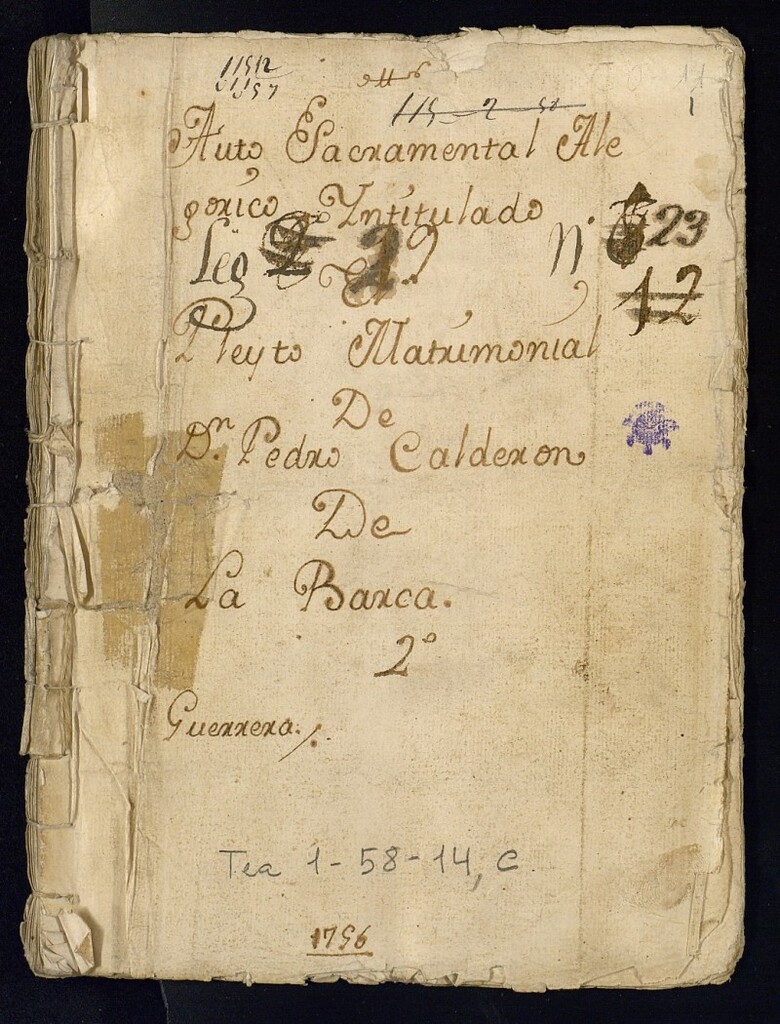 11512
115-2-58
1
Auto Sacramental Ale
gorico Yntitulado
Leg 2º N. 23
El
12
Pleyto Matrimonial
De
Dn. Pedro Calderon
De
La Barca.
2º
Guerrera.
Tea 1-58-14, C
1756